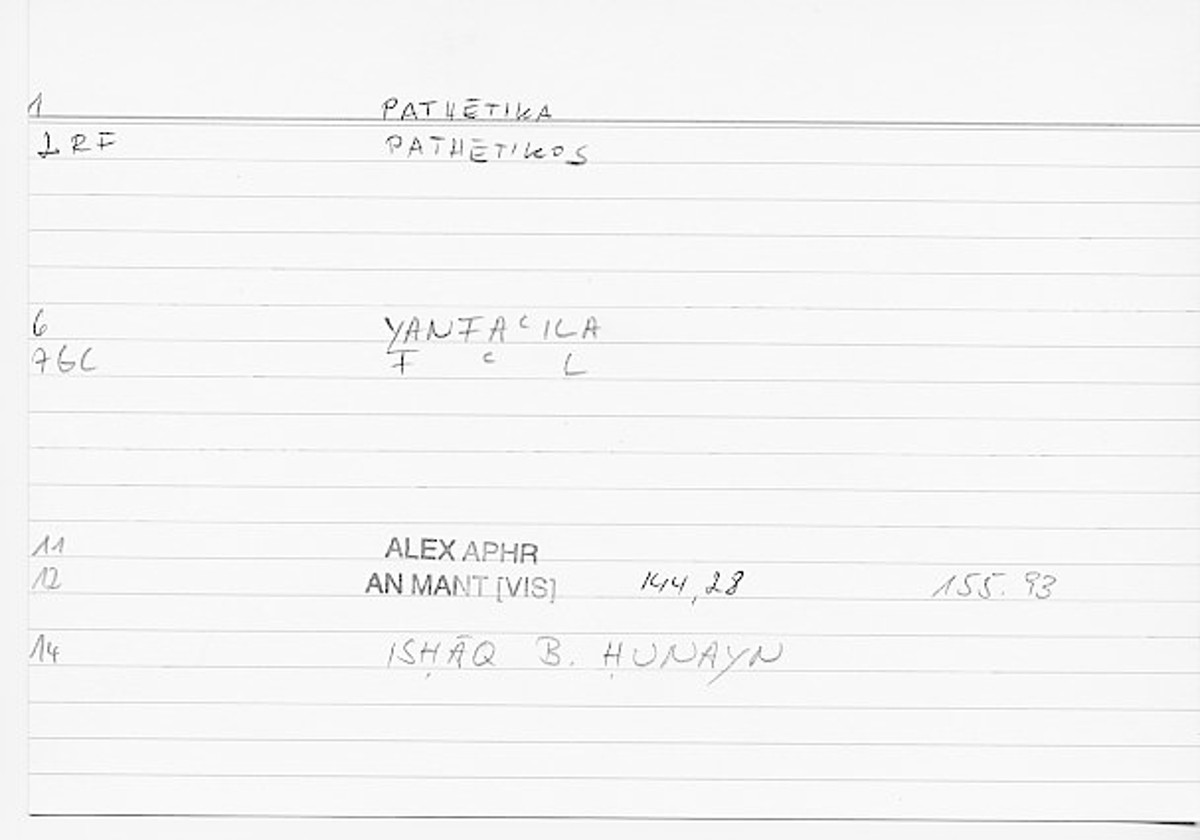 1 PATHĒTIKA
1RF PATHĒTIKOS
6 YANFAᶜILA
7GC F ᶜ L
11 ALEX APHR
12 AN MANT [VIS] 144,28 155.93
14 ISḤĀQ B. ḤUNAYN